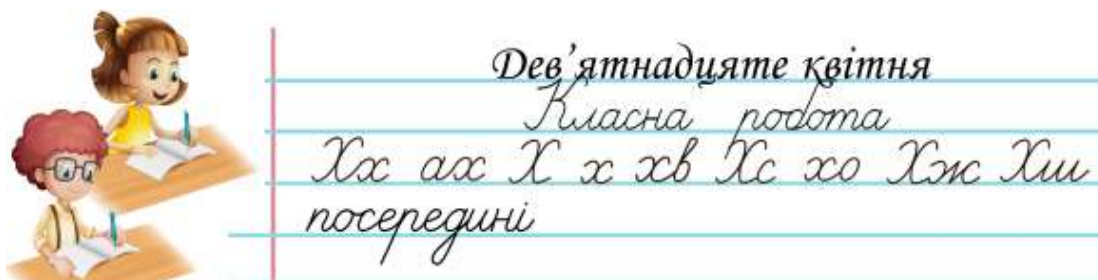 Дев’ятнадцяте квітня
Класна робота
Хх ах Х х хв Хс хо Хж Хш
посередині